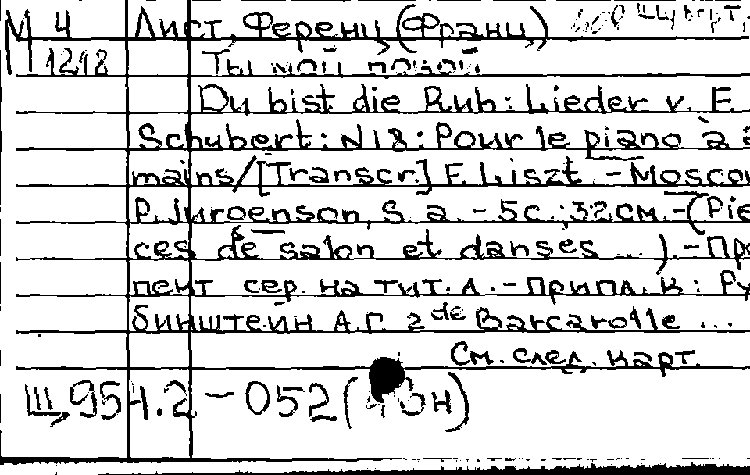 М 4 Лист, Ференц (Франц)
1218 Ты мой покой
Du bist die Ruh: Lieder v. F.
Schubert: N18: Pour le piano à 2
mains/[Transcr.] F. Liszt. - Moscou
P. Jurgenson, S. a. - 5с.; 32см. - (Piè
ces de salon et danses ...). - Пре
пент сер. на тит. л. - Припл. к: Ру
бинштейн А.Г. 2de Barcarolle ...
См. след. карт.
Щ954.2-052